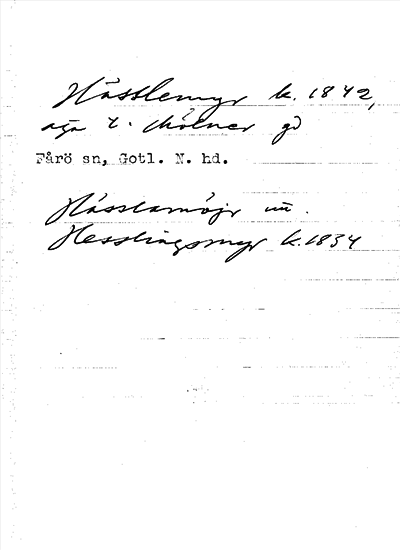 Hässlemyr k. 1842,
äga t. Mölner gd
Fårö sn, Gotl. N. hd.
Hässlamöjr
Hesslingsmyr k. 1834